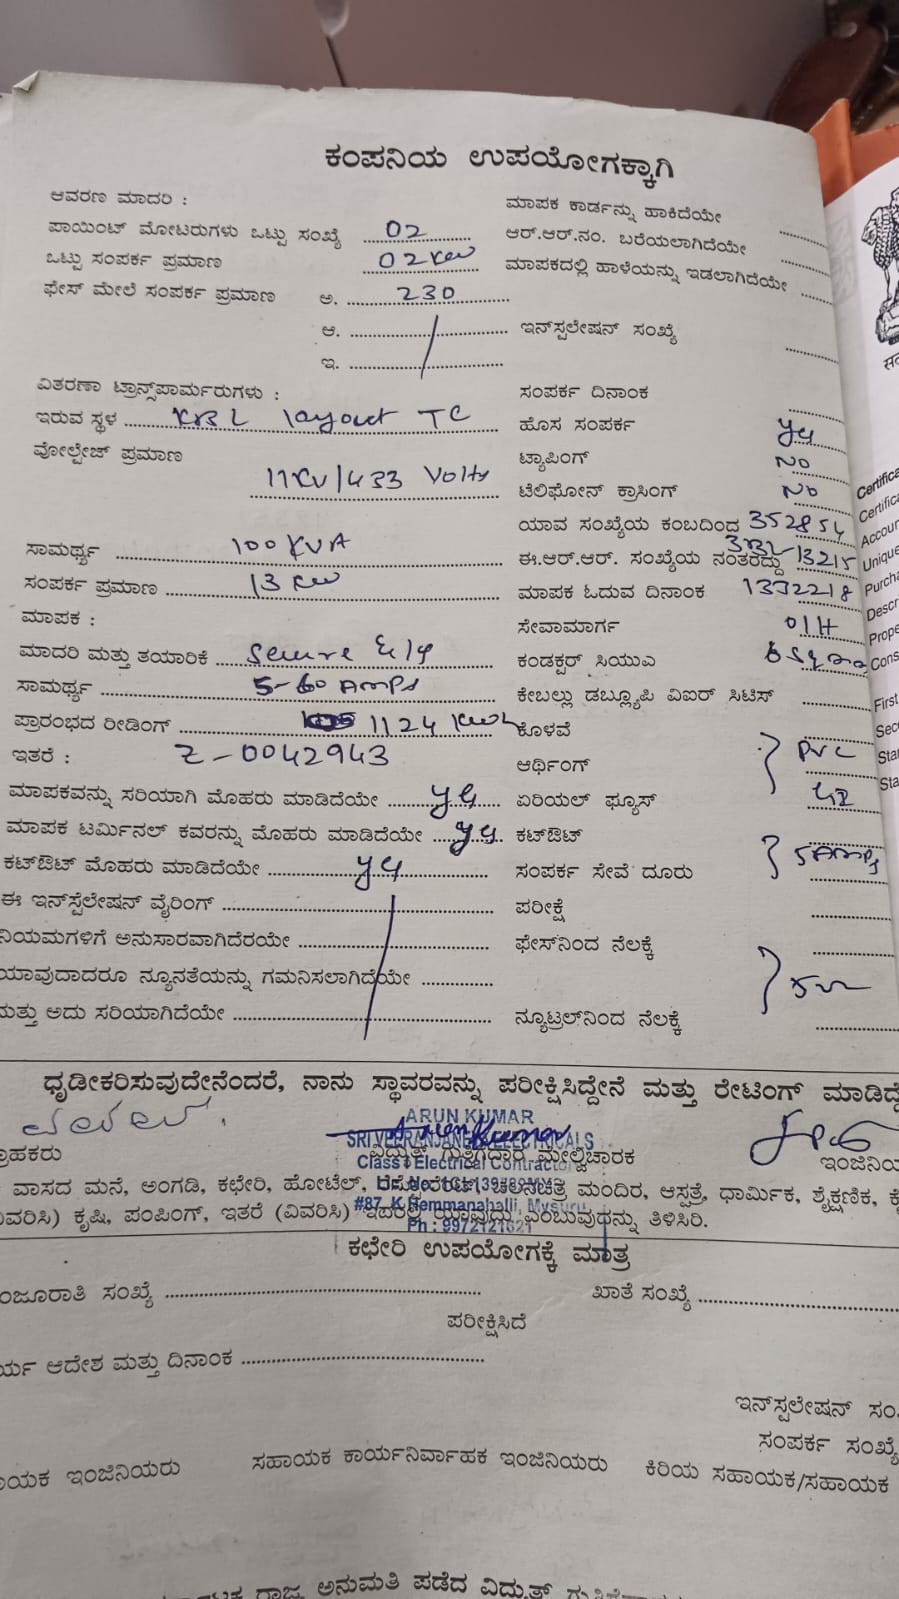 ಕಂಪನಿಯ ಉಪಯೋಗಕ್ಕಾಗಿ
ಆವರಣ ಮಾದರಿ :
ಮಾಪಕ ಕಾರ್ಡನ್ನು ಹಾಕಿದೆಯೇ
ಪಾಯಿಂಟ್ ಮೋಟರುಗಳು ಒಟ್ಟು ಸಂಖ್ಯೆ 02
ಆರ್.ಆರ್.ನಂ. ಬರೆಯಲಾಗಿದೆಯೇ
ಒಟ್ಟು ಸಂಪರ್ಕ ಪ್ರಮಾಣ 02 kw
ಮಾಪಕದಲ್ಲಿ ಹಾಳೆಯನ್ನು ಇಡಲಾಗಿದೆಯೇ
ಫೇಸ್ ಮೇಲೆ ಸಂಪರ್ಕ ಪ್ರಮಾಣ ಅ. 230
ಆ.
ಇನ್‌ಸ್ಟಲೇಷನ್ ಸಂಖ್ಯೆ
ಇ.
ವಿತರಣಾ ಟ್ರಾನ್ಸ್‌ಪಾರ್ಮರುಗಳು :
ಸಂಪರ್ಕ ದಿನಾಂಕ
ಇರುವ ಸ್ಥಳ KBL layout TC
ಹೊಸ ಸಂಪರ್ಕ yes
ವೋಲ್ಟೇಜ್ ಪ್ರಮಾಣ
ಟ್ಯಾಪಿಂಗ್ NO
11KV/433 Volts
ಟೆಲಿಫೋನ್ ಕ್ರಾಸಿಂಗ್ NO
ಯಾವ ಸಂಖ್ಯೆಯ ಕಂಬದಿಂದ 352854
ಸಾಮರ್ಥ್ಯ 100 KVA
ಈ.ಆರ್.ಆರ್. ಸಂಖ್ಯೆಯ ನಂತರದ್ದು 13215
ಸಂಪರ್ಕ ಪ್ರಮಾಣ 13 kw
ಮಾಪಕ ಓದುವ ದಿನಾಂಕ 1332218
ಮಾಪಕ :
ಸೇವಾಮಾರ್ಗ O/H
ಮಾದರಿ ಮತ್ತು ತಯಾರಿಕೆ Secure
ಕಂಡಕ್ಟರ್ ಸಿಯುಎ
ಸಾಮರ್ಥ್ಯ 5-60 AMPS
ಕೇಬಲ್ಲು ಡಬ್ಲ್ಯೂಪಿ ವಿಐರ್ ಸಿಟಿಸ್
ಪ್ರಾರಂಭದ ರೀಡಿಂಗ್ 1124 kwh
ಕೊಳವೆ
ಇತರೆ : Z-0042943
ಆರ್ಥಿಂಗ್ PVC
ಮಾಪಕವನ್ನು ಸರಿಯಾಗಿ ಮೊಹರು ಮಾಡಿದೆಯೇ yes
ಏರಿಯಲ್ ಫ್ಯೂಸ್
ಮಾಪಕ ಟರ್ಮಿನಲ್ ಕವರನ್ನು ಮೊಹರು ಮಾಡಿದೆಯೇ yes
ಕಟ್‌ಔಟ್
ಕಟ್‌ಔಟ್ ಮೊಹರು ಮಾಡಿದೆಯೇ yes
ಸಂಪರ್ಕ ಸೇವೆ ದೂರು 5 AMPS
ಈ ಇನ್‌ಸ್ಟಲೇಷನ್ ವೈರಿಂಗ್
ಪರೀಕ್ಷೆ
ನಿಯಮಗಳಿಗೆ ಅನುಸಾರವಾಗಿದೆರಯೇ
ಫೇಸ್‌ನಿಂದ ನೆಲಕ್ಕೆ
ಯಾವುದಾದರೂ ನ್ಯೂನತೆಯನ್ನು ಗಮನಿಸಲಾಗಿದೆಯೇ
ಮತ್ತು ಅದು ಸರಿಯಾಗಿದೆಯೇ
ನ್ಯೂಟ್ರಲ್‌ನಿಂದ ನೆಲಕ್ಕೆ
ಧೃಡೀಕರಿಸುವುದೇನೆಂದರೆ, ನಾನು ಸ್ಥಾವರವನ್ನು ಪರೀಕ್ಷಿಸಿದ್ದೇನೆ ಮತ್ತು ರೇಟಿಂಗ್ ಮಾಡಿದ್ದೆ
ARUN KUMAR
SRI VEERANJANEYA ELECTRICALS
ವಿದ್ಯುತ್ ಗುತ್ತಿಗೆದಾರ ಮೇಲ್ವಿಚಾರಕ
Class I Electrical Contractor
ಇಂಜಿನಿಯ
ವಾಸದ ಮನೆ, ಅಂಗಡಿ, ಕಛೇರಿ, ಹೋಟೆಲ್, ಚಲನಚಿತ್ರ ಮಂದಿರ, ಆಸ್ಪತ್ರೆ, ಧಾರ್ಮಿಕ, ಶೈಕ್ಷಣಿಕ,
#87, K.Hemmanahalli, Mysuru
ವಿವರಿಸಿ) ಕೃಷಿ, ಪಂಪಿಂಗ್, ಇತರೆ (ವಿವರಿಸಿ) ಇದರಲ್ಲಿ ಯಾವುದು ಎಂಬುವುದನ್ನು ತಿಳಿಸಿರಿ.
Ph : 9972121621
ಕಛೇರಿ ಉಪಯೋಗಕ್ಕೆ ಮಾತ್ರ
ಂಜೂರಾತಿ ಸಂಖ್ಯೆ
ಖಾತೆ ಸಂಖ್ಯೆ
ಪರೀಕ್ಷಿಸಿದೆ
ರ್ಯ ಆದೇಶ ಮತ್ತು ದಿನಾಂಕ
ಇನ್‌ಸ್ಟಲೇಷನ್ ಸಂ.
ಸಂಪರ್ಕ ಸಂಖ್ಯೆ
ಾಯಕ ಇಂಜಿನಿಯರು
ಸಹಾಯಕ ಕಾರ್ಯನಿರ್ವಾಹಕ ಇಂಜಿನಿಯರು
ಕಿರಿಯ ಸಹಾಯಕ/ಸಹಾಯಕ
ರಾಜ್ಯ ಅನುಮತಿ ಪಡೆದ ವಿದ್ಯುತ್